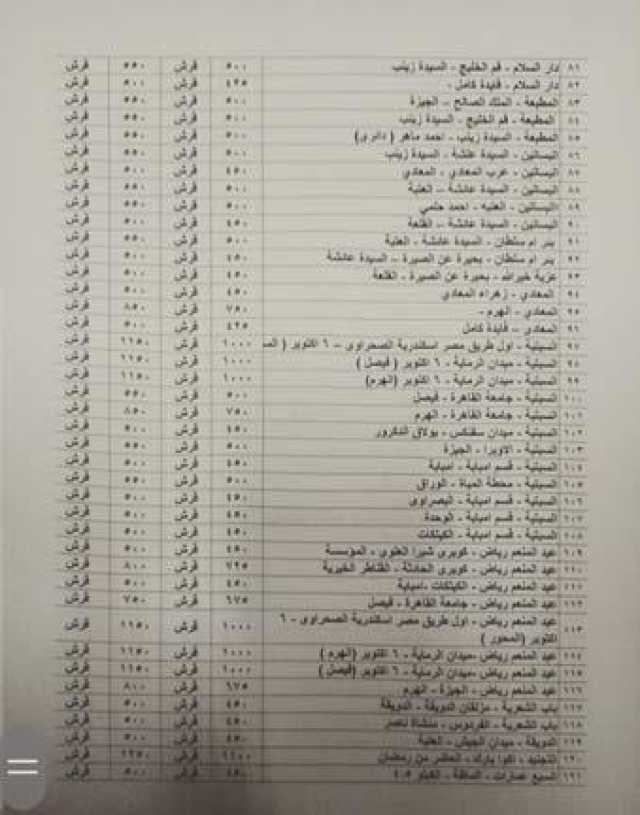 ٨١ دار السلام - فم الخليج - السيدة زينب ٥٠٠ قرش ٥٥٠ قرش
٨٢ دار السلام - فايدة كامل - ٤٢٥ قرش ٥٠٠ قرش
٨٣ المطبعة - الملك الصالح - الجيزة ٥٠٠ قرش ٥٥٠ قرش
٨٤ المطبعة - فم الخليج - السيدة زينب ٥٠٠ قرش ٥٥٠ قرش
٨٥ المطبعة - السيدة زينب - احمد ماهر ( دائرى ) ٥٠٠ قرش ٥٥٠ قرش
٨٦ البساتين - السيدة عائشة - السيدة زينب ٥٠٠ قرش ٥٥٠ قرش
٨٧ البساتين - عرب المعادي - المعادي ٤٥٠ قرش ٥٠٠ قرش
٨٨ البساتين - السيدة عائشة – العتبة ٥٠٠ قرش ٥٥٠ قرش
٨٩ البساتين - العتبه - احمد حلمي ٥٠٠ قرش ٥٥٠ قرش
٩٠ البساتين - السيدة عائشة – القلعة ٤٥٠ قرش ٥٠٠ قرش
٩١ بئر ام سلطان - السيدة عائشة - العتبة ٥٠٠ قرش ٥٥٠ قرش
٩٢ بئر ام سلطان - بحيرة عن الصيرة – السيدة عائشة ٤٥٠ قرش ٥٠٠ قرش
٩٣ عزبة خيرالله - بحيرة عن الصيرة - القلعة ٤٥٠ قرش ٥٠٠ قرش
٩٤ المعادي - زهراء المعادي ٤٥٠ قرش ٥٠٠ قرش
٩٥ المعادي - الهرم - ٧٥٠ قرش ٨٥٠ قرش
٩٦ المعادي – فايدة كامل ٤٢٥ قرش ٥٠٠ قرش
٩٧ السبتية - اول طريق مصر اسكندرية الصحراوى – ٦ اكتوبر ( ١٠٠٠ قرش ١١٥٠ قرش
٩٨ السبتية - ميدان الرماية - ٦ اكتوبر ( فيصل ) ١٠٠٠ قرش ١١٥٠ قرش
٩٩ السبتية - ميدان الرماية - ٦ اكتوبر (الهرم) ١٠٠٠ قرش ١١٥٠ قرش
١٠٠ السبتية - جامعة القاهرة - فيصل ٥٠٠ قرش ٥٥٠ قرش
١٠١ السبتية - جامعة القاهرة - الهرم ٧٥٠ قرش ٨٥٠ قرش
١٠٢ السبتية - ميدان سفنكس - بولاق الدكرور ٤٥٠ قرش ٥٠٠ قرش
١٠٣ السبتية - الاوبرا - الجيزة ٥٠٠ قرش ٥٥٠ قرش
١٠٤ السبتية - قسم امبابة - امبابة ٤٥٠ قرش ٥٠٠ قرش
١٠٥ السبتية - محطة المياة - الوراق ٥٠٠ قرش ٥٥٠ قرش
١٠٦ السبتية - قسم امبابة - البصراوى ٤٥٠ قرش ٥٠٠ قرش
١٠٧ السبتية - قسم امبابة - الوحدة ٤٥٠ قرش ٥٠٠ قرش
١٠٨ السبتية - قسم امبابة - الكيتكات ٤٥٠ قرش ٥٠٠ قرش
١٠٩ عبد المنعم رياض - كوبرى شبرا العلوى - المؤسسة ٤٥٠ قرش ٥٠٠ قرش
١١٠ عبد المنعم رياض - كوبرى الحادثة - القناطر الخيرية ٧٢٥ قرش ٨٠٠ قرش
١١١ عبد المنعم رياض - الكيتكات -امبابة ٤٥٠ قرش ٥٠٠ قرش
١١٢ عبد المنعم رياض - جامعة القاهرة - فيصل ٦٧٥ قرش ٧٥٠ قرش
١١٣ عبد المنعم رياض - اول طريق مصر اسكندرية الصحراوى - ٦ ١٠٠٠ قرش ١١٥٠ قرش
اكتوبر (المحور )
١١٤ عبد المنعم رياض -ميدان الرماية - ٦ اكتوبر (الهرم ) ١٠٠٠ قرش ١١٥٠ قرش
١١٥ عبد المنعم رياض -ميدان الرماية - ٦ اكتوبر (فيصل ) ١٠٠٠ قرش ١١٥٠ قرش
١١٦ عبد المنعم رياض - الجيزة - الهرم ٦٧٥ قرش ٨٠٠ قرش
١١٧ باب الشعرية - مزلقان الدويقة - الدويقة ٤٥٠ قرش ٥٠٠ قرش
١١٨ باب الشعرية - الفردوس - منشاة ناصر ٤٥٠ قرش ٥٠٠ قرش
١١٩ الدويقة - ميدان الجيش - العتبة ٤٥٠ قرش ٥٠٠ قرش
١٢٠ التجنيد - اكوا بارك - العاشر من رمضان ١١٠٠ قرش ١٢٥٠ قرش
١٢١ السبع عمارات - الماظة - الكيلو ٤.٥ ٤٥٠ قرش ٥٠٠ قرش